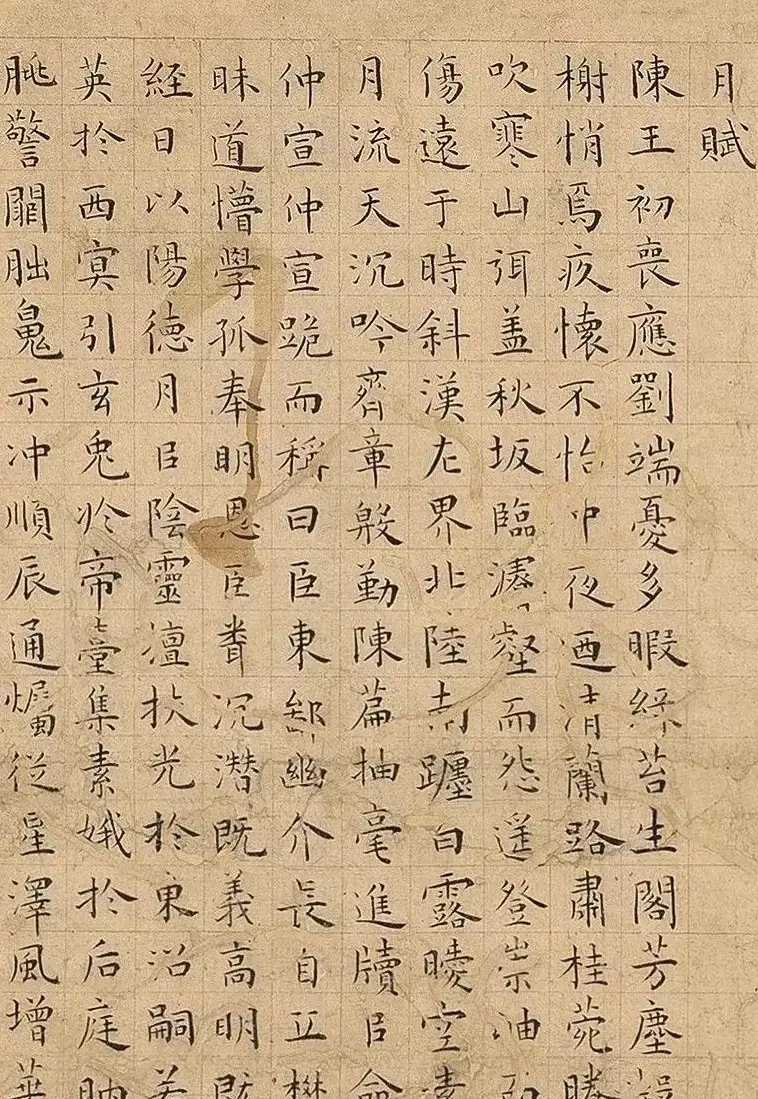 月賦
陳王初喪應劉端憂多暇綠苔生閣芳塵
榭悄焉疚懷不怡中夜迺清蘭路肅桂苑騰
吹寒山弭盖秋坂臨濬壑而怨遥登崇油而
傷遠于時斜漢左界北陸南躔白露曖空素
月流天沉吟齊章殷勤陳篇抽毫進牘㠯命
仲宣仲宣跪而稱曰臣東鄙幽介長自丘樊
昧道懵學孤奉明恩臣聞沉潛既義高明既
經日以陽德月㠯陰靈擅扶光於東沼嗣若
英於西冥引玄兔於帝臺集素娥於后庭朒
朓警闕朏魄示冲順辰通爥從星澤風增華